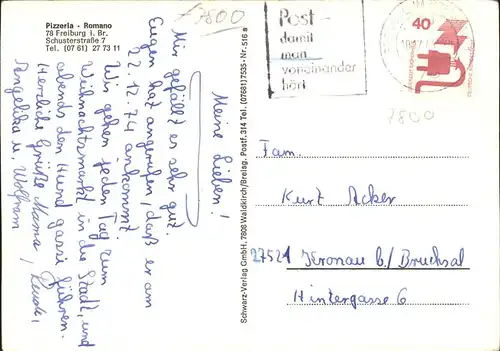 Pizzeria - Romano
78 Freiburg i. Br.
Schusterstraße 7
Tel. (07 61) 27 73 11
7800
Meine Lieben!
Mir gefällt es sehr gut.
Eugen hat angerufen, daß er am
22.12.74 ankommt.
Wir gehen jeden Tag zum
Weihnachtsmarkt in die Stadt, und
abends den Hund gassi führen.
Herzliche Grüße Mama,
Angelika u. Wolfram
Schwarz-Verlag GmbH, 7808 Waldkirch/Breisg. Postf. 314 Tel. (07681) 7535 - Nr. 516 a
Post-
damit
man
voneinander
hört
40
7800
Fam.
Kurt Acker
27521 Kronau b/ Bruchsal
Hintergasse 6